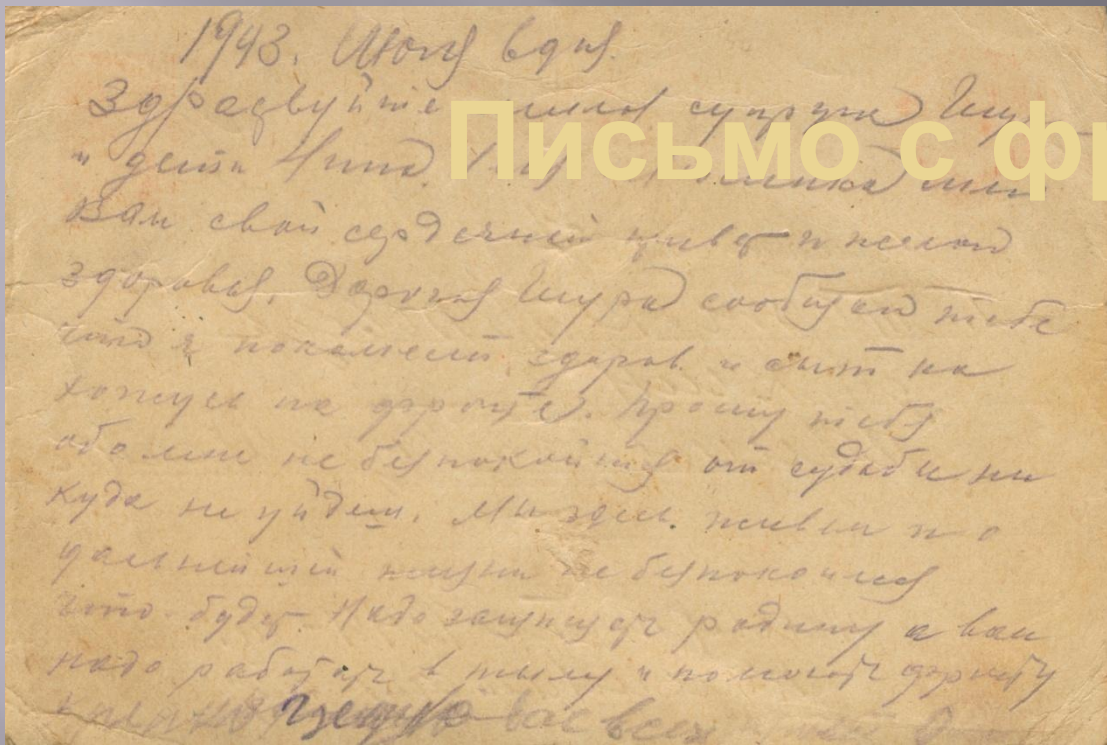 1943. Июля 6 дня.
Здраствуйте супруга Шура
и дети Нина
Письмо с фр
Вам свой сердечный привет и желаю
здоровья. Дорогая Шура сообщаю тебе
что я покамест здоров и сыт на
хожусь на фронте. Прошу тебя
обо мне не беспокойтя от судьбы ни
куда не уйдеш. Мы здесь живем и о
дальнейшей жизни не беспокоимся
что будет. Надо защищать родину а вам
надо работать в тылу и помогать фронту
целую вас всех